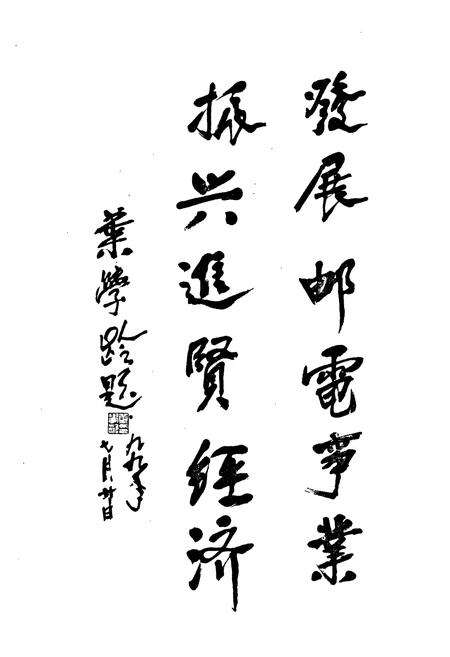 發展邮電事業
振兴進賢經济
葉學龄题
一九九〇年
七月廿日